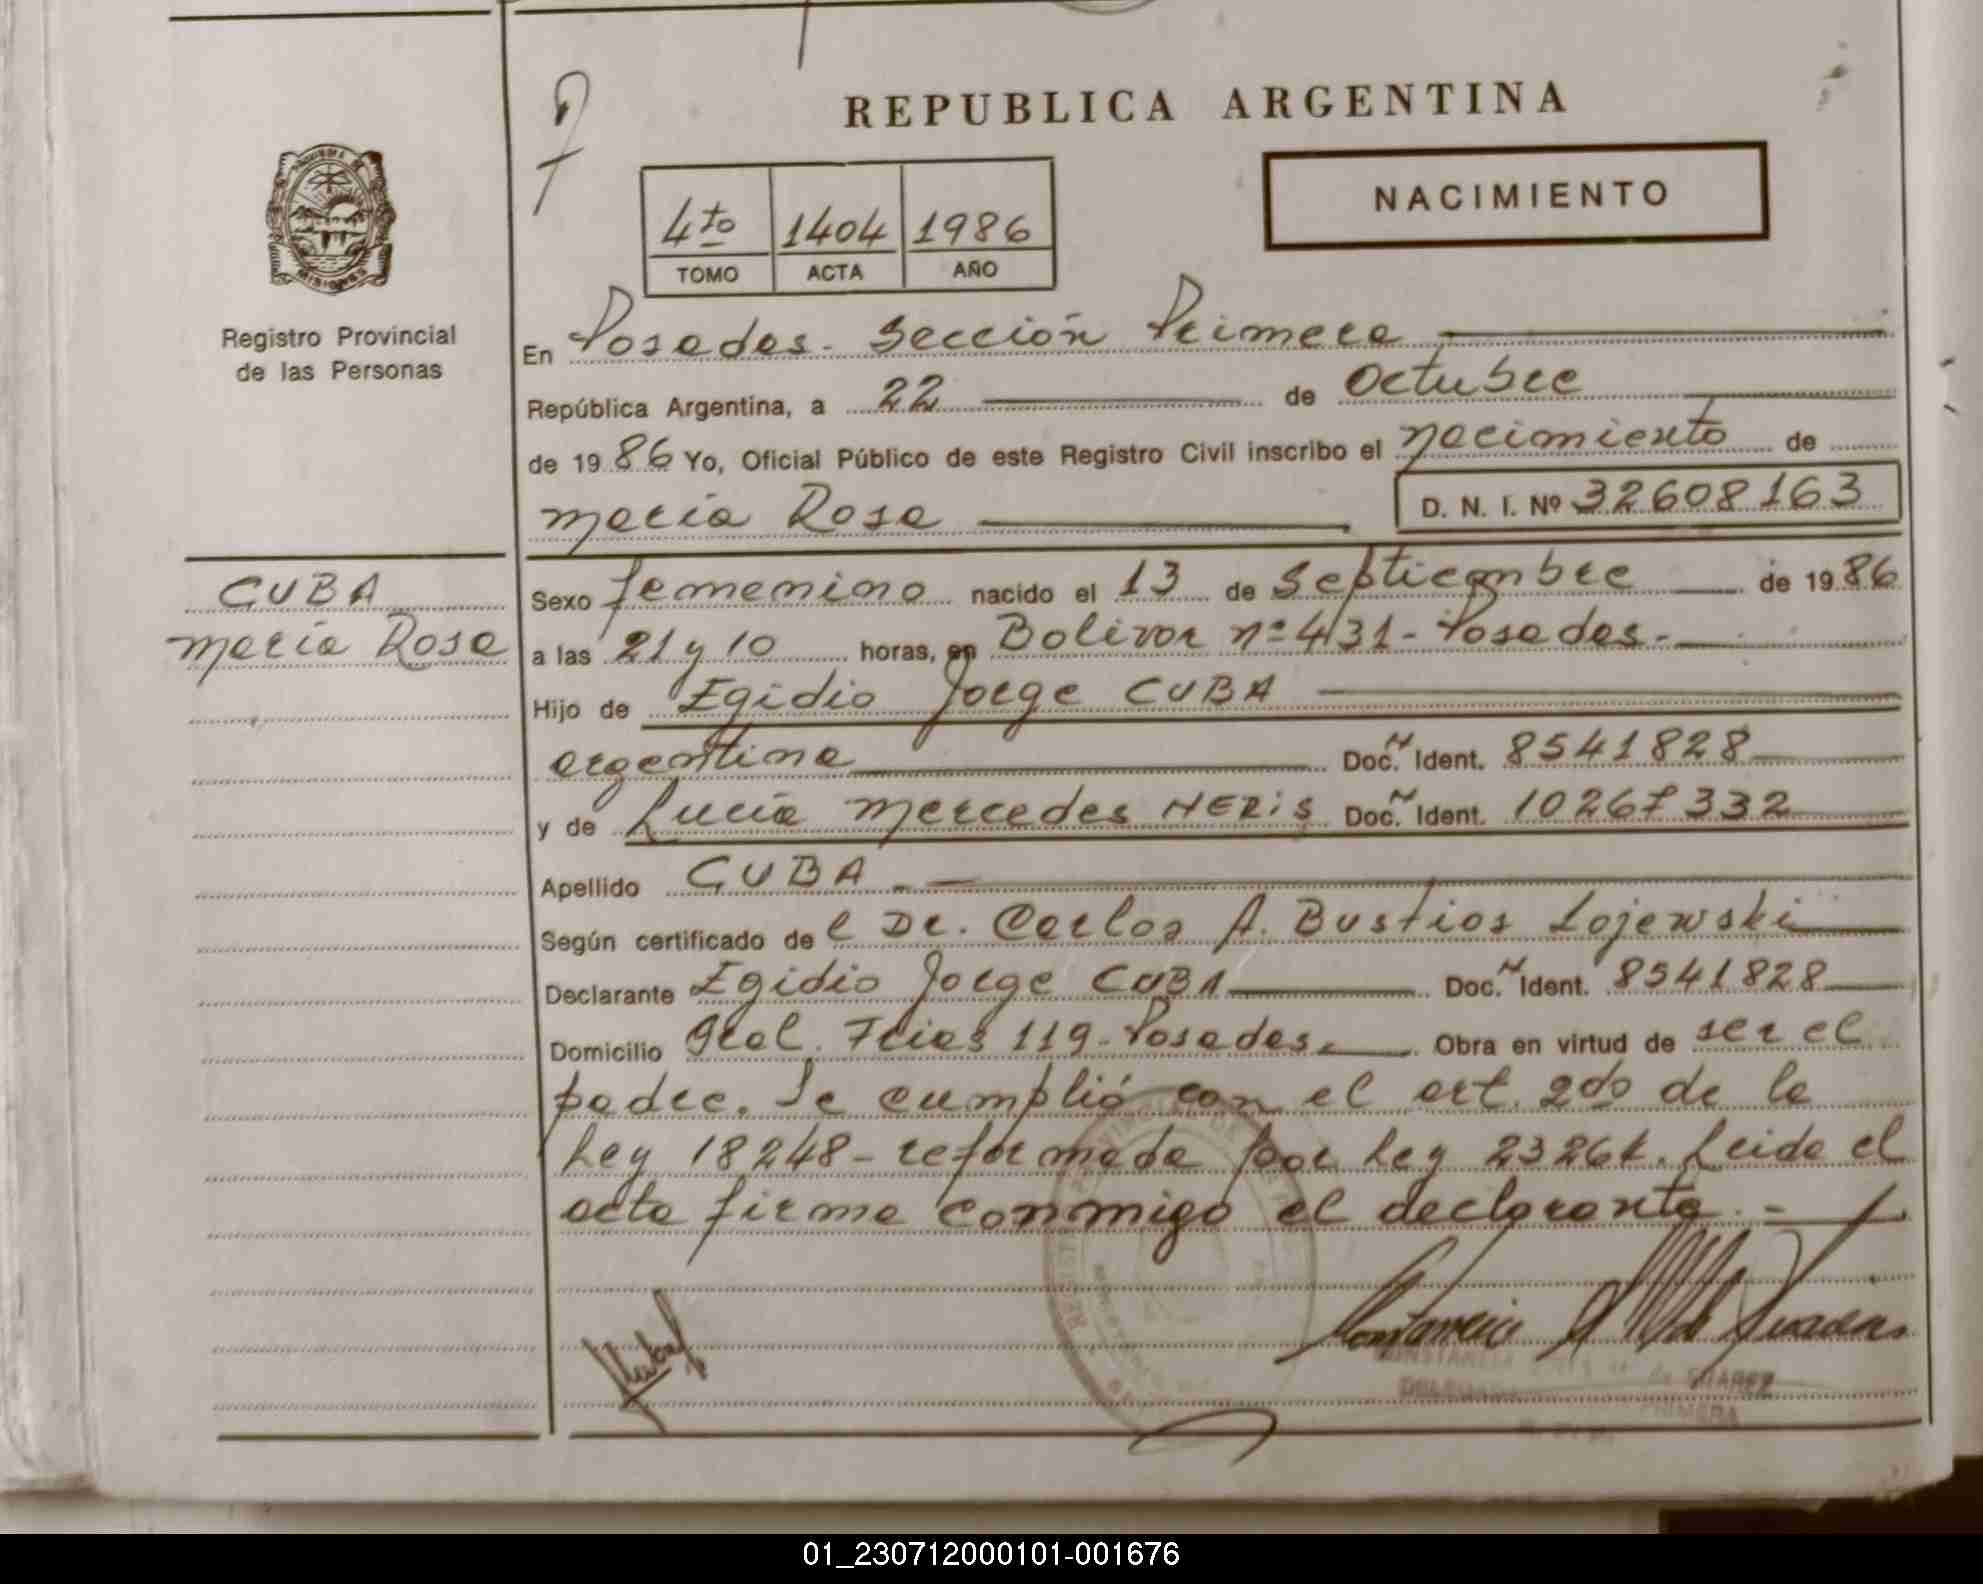 REPUBLICA ARGENTINA
NACIMIENTO
4to 1404 1986
TOMO ACTA AÑO
MISIONES
Registro Provincial
de las Personas
En Posadas. Sección Primera
República Argentina, a 22 de Octubre
de 1986 Yo, Oficial Público de este Registro Civil inscribo el nacimiento de
María Rosa D. N. I. Nº 32608163
CUBA
María Rosa
Sexo femenino nacido el 13 de Septiembre de 1986
a las 21 y 10 horas, en Bolivar nº 431 - Posadas.-
Hijo de Egidio Jorge CUBA
argentina Doc. Ident. 8541828
y de Lucía Mercedes NERIS Doc. Ident. 10267332
Apellido CUBA
Según certificado del Dr. Carlos A. Bustios Lojewski
Declarante Egidio Jorge CUBA Doc. Ident. 8541828
Domicilio Gral. Frias 119 - Posadas. Obra en virtud de ser el
padre. Se cumplió con el art. 2do de la
Ley 18248 - reformada por Ley 23264. Leida el
acta firma conmigo el declarante. -
PRIMERA
01_230712000101-001676